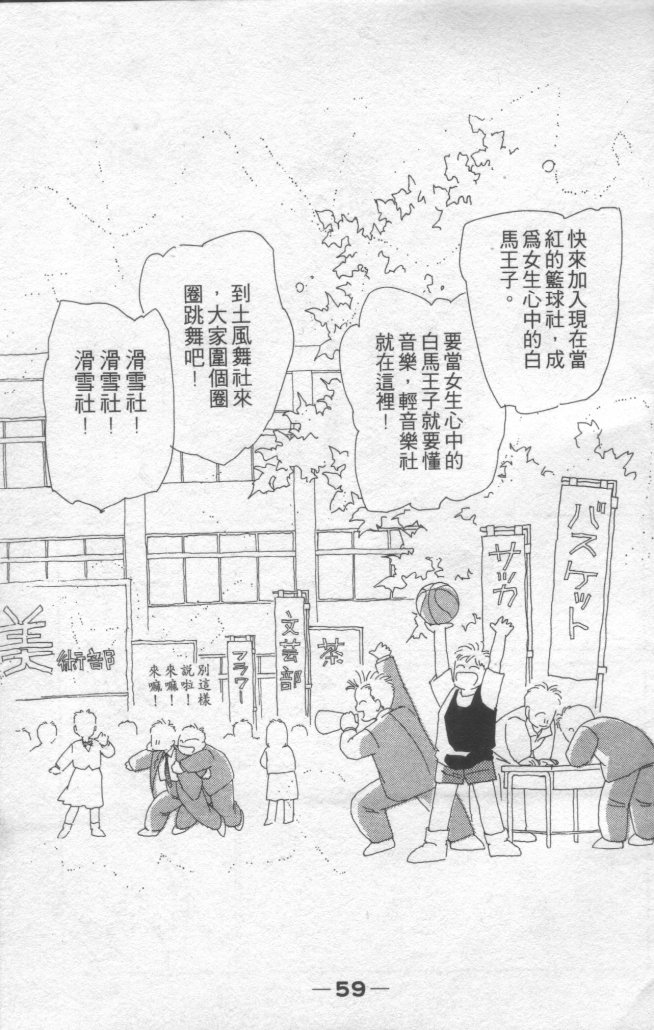 快來加入現在當
紅的籃球社，成
爲女生心中的白
馬王子。
要當女生心中的
白馬王子就要懂
音樂，輕音樂社
就在這裡！
到土風舞社來
，大家圍個圈
圈跳舞吧！
滑雪社！
滑雪社！
滑雪社！
バスケット
サッカ
茶
文芸部
フラワー
別這樣
說啦！
來嘛！
來嘛！
美術部
—59—